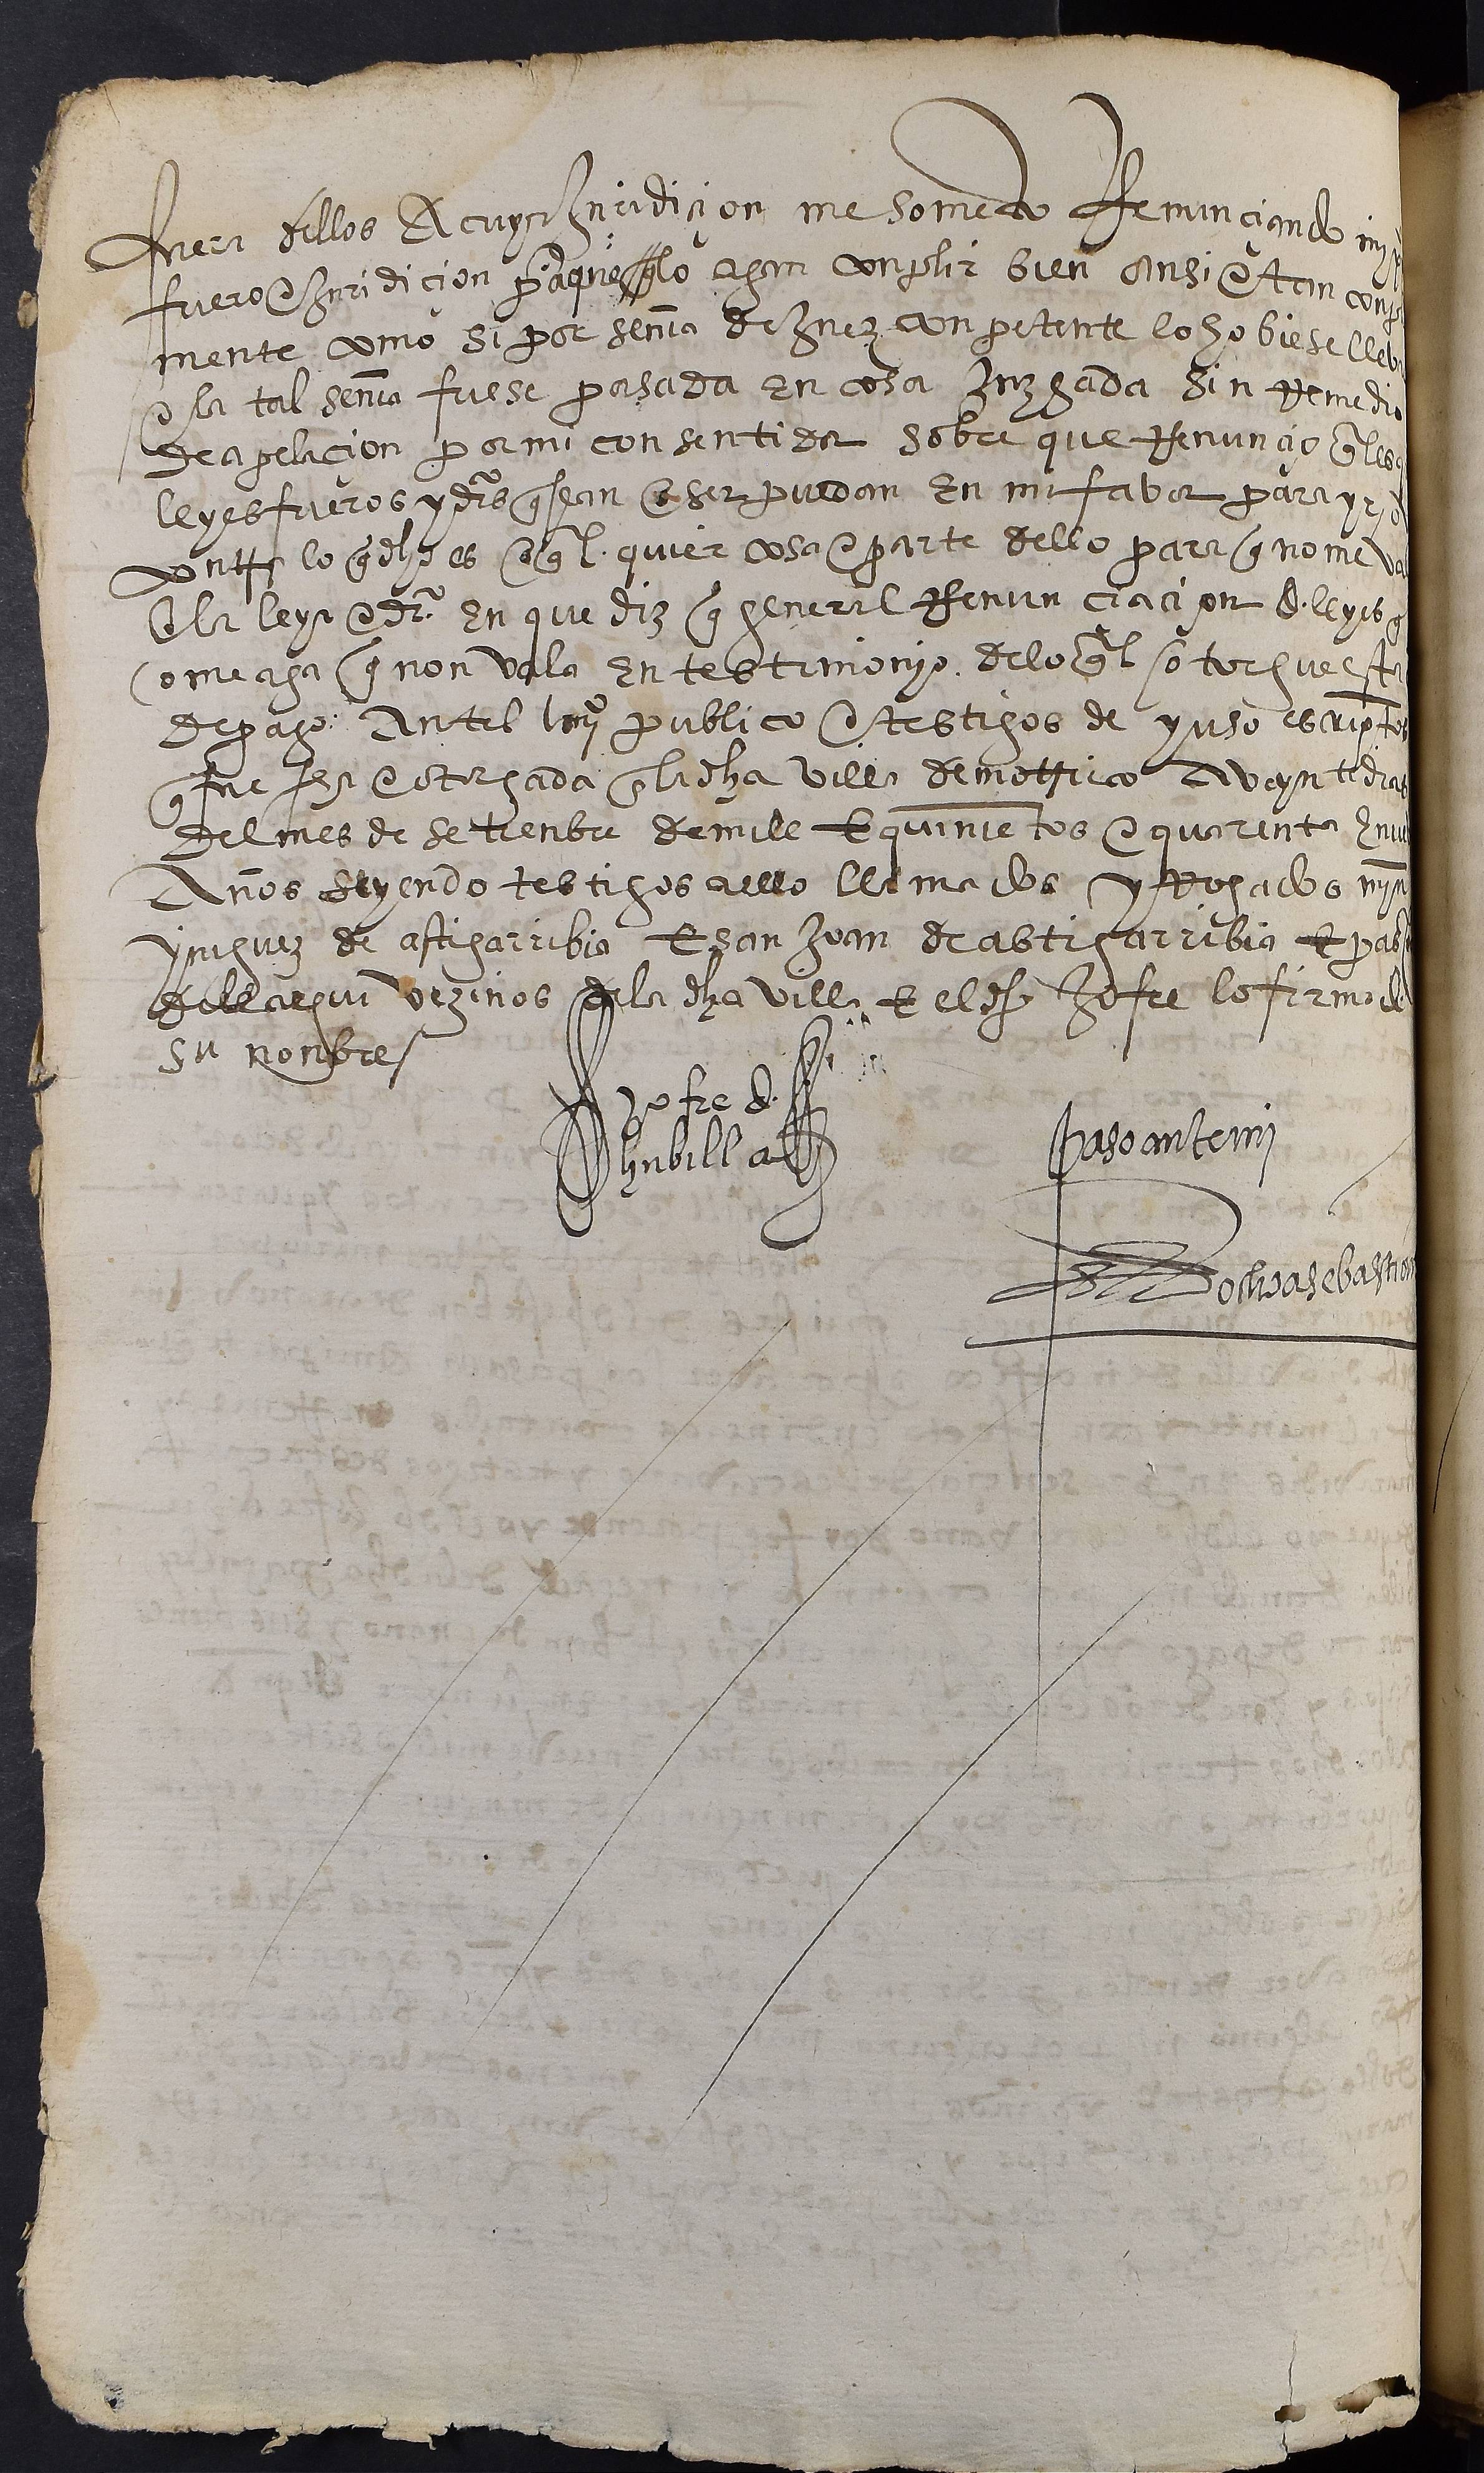 dellos A cuya Juridiçion me someto Renunciando mi
fuero e Juridicion pa que lo agan conplir bien ansi e tan conpl
mente como si por sena de Juez conpetente lo ho biese lleba
e la tal sena fuese pasada en cosa Juzgada sin Remedio
de apelacion por mi consentida sobre que Renuncio qles q
leyes fueros y dros q sean e ser puedan en mi fabor para yr o
contra lo q dho es e ql quier cosa e parte dello para q no me va
e la ley e dro en que diz q general Renunciacion de leyes q
ome aga q non vala en testimonyo de lo ql otorgue esta
de pago Antel scryo publico e testigos de yuso escriptos
q fue fha e otorgada en la dha villa de motrico A veynte dias
del mes de setienbre de mill E quinientos e quarenta E nue
Años seyendo testigos a ello llamados y Rogados myn
yniguez de astigarribia E san Joan de astigarribia E
vezinos de la dha villa E el dho Jofre lo firmo de
su nonbre
yofre d
hubilla
Paso ante mi
ochoa sebastian